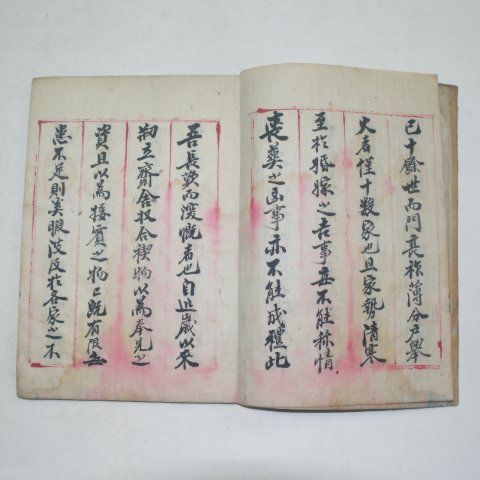 已十餘世而門衰祚薄分戶舉
大者僅十數家也且家勢清寒
至於婚嫁之吉事每不能稱情
喪葬之凶事亦不能成禮此
吾長嘆而漫慨者也自近歲以來
刱立齋舍收合稧物以為奉先之
資且以為接賓之物已旣有限每
患不足則奚暇波及於各家之不